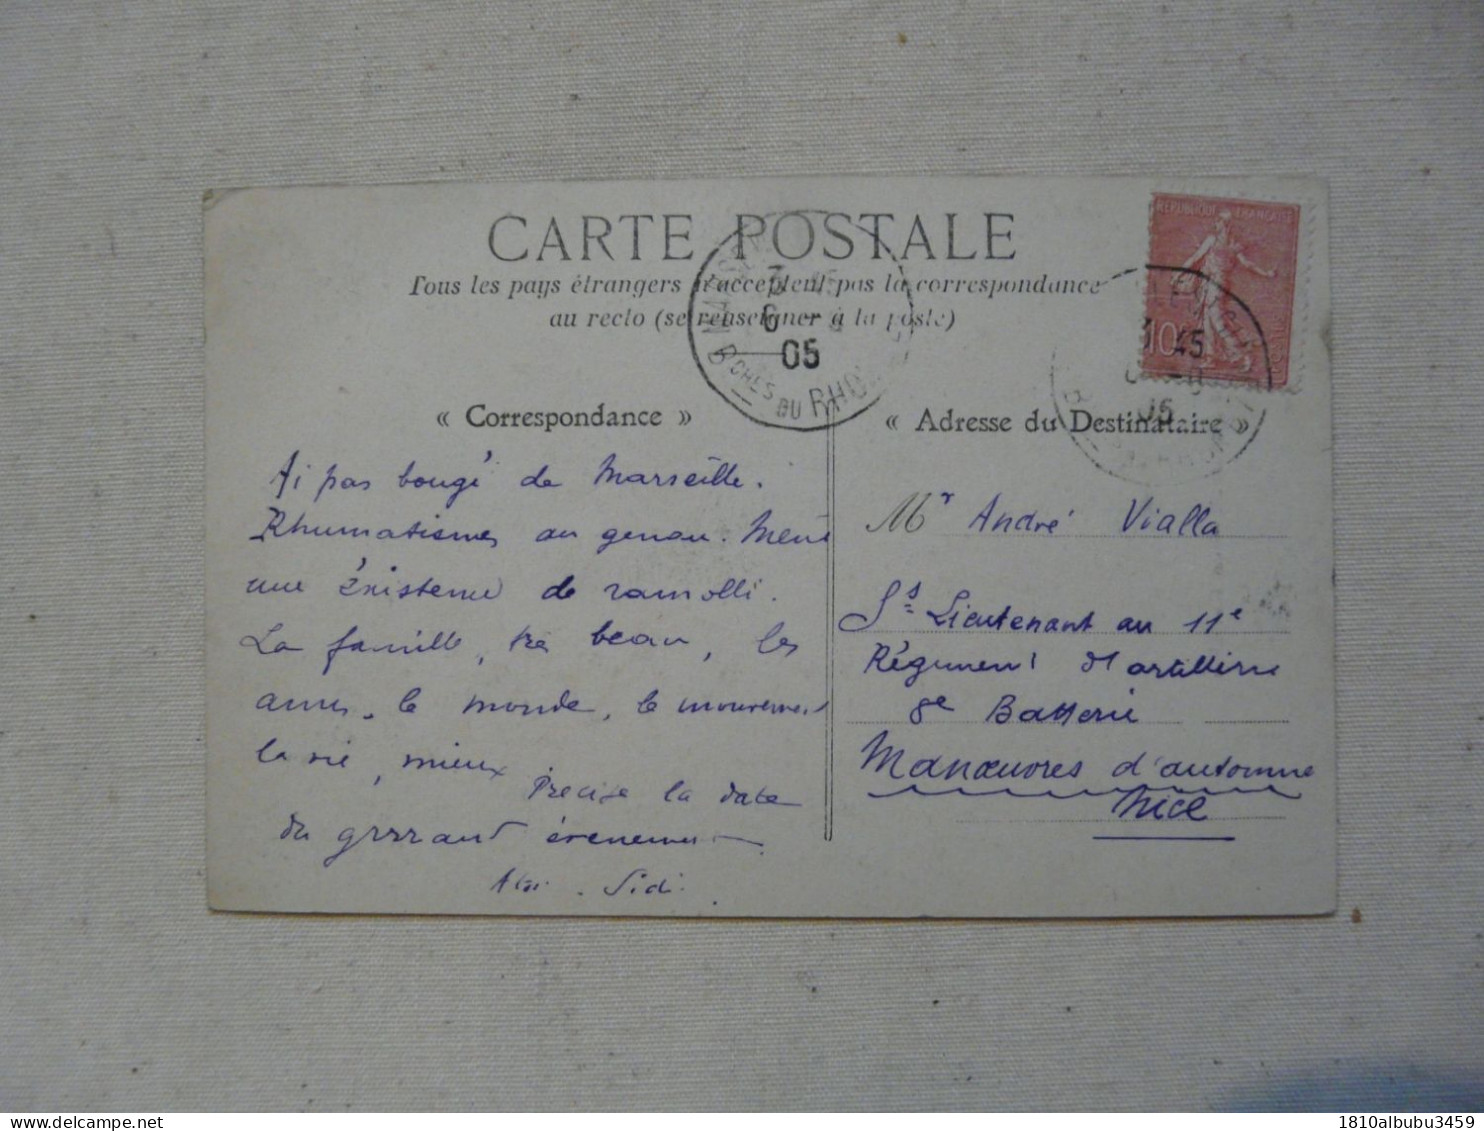 CARTE POSTALE
Tous les pays étrangers n'acceptent pas la correspondance
au recto (se renseigner à la poste)
RÉPUBLIQUE FRANÇAISE
10
3
6
05
BCHES DU RHONE
3 45
05
« Correspondance »
« Adresse du Destinataire »
Ai pas bougé de Marseille.
Rhumatismes au genou. Mène
une éxistence de ramolli.
La famille, très beau, les
amis, le monde, le mouvement
la vie, mieux Précise la date
du grrrand évènement
Sidi.
Mr André Vialla
Ss Lieutenant au 11e
Régiment d'artillerie
8e Batterie
Manœuvres d'automne
Nice
1810albubu3459